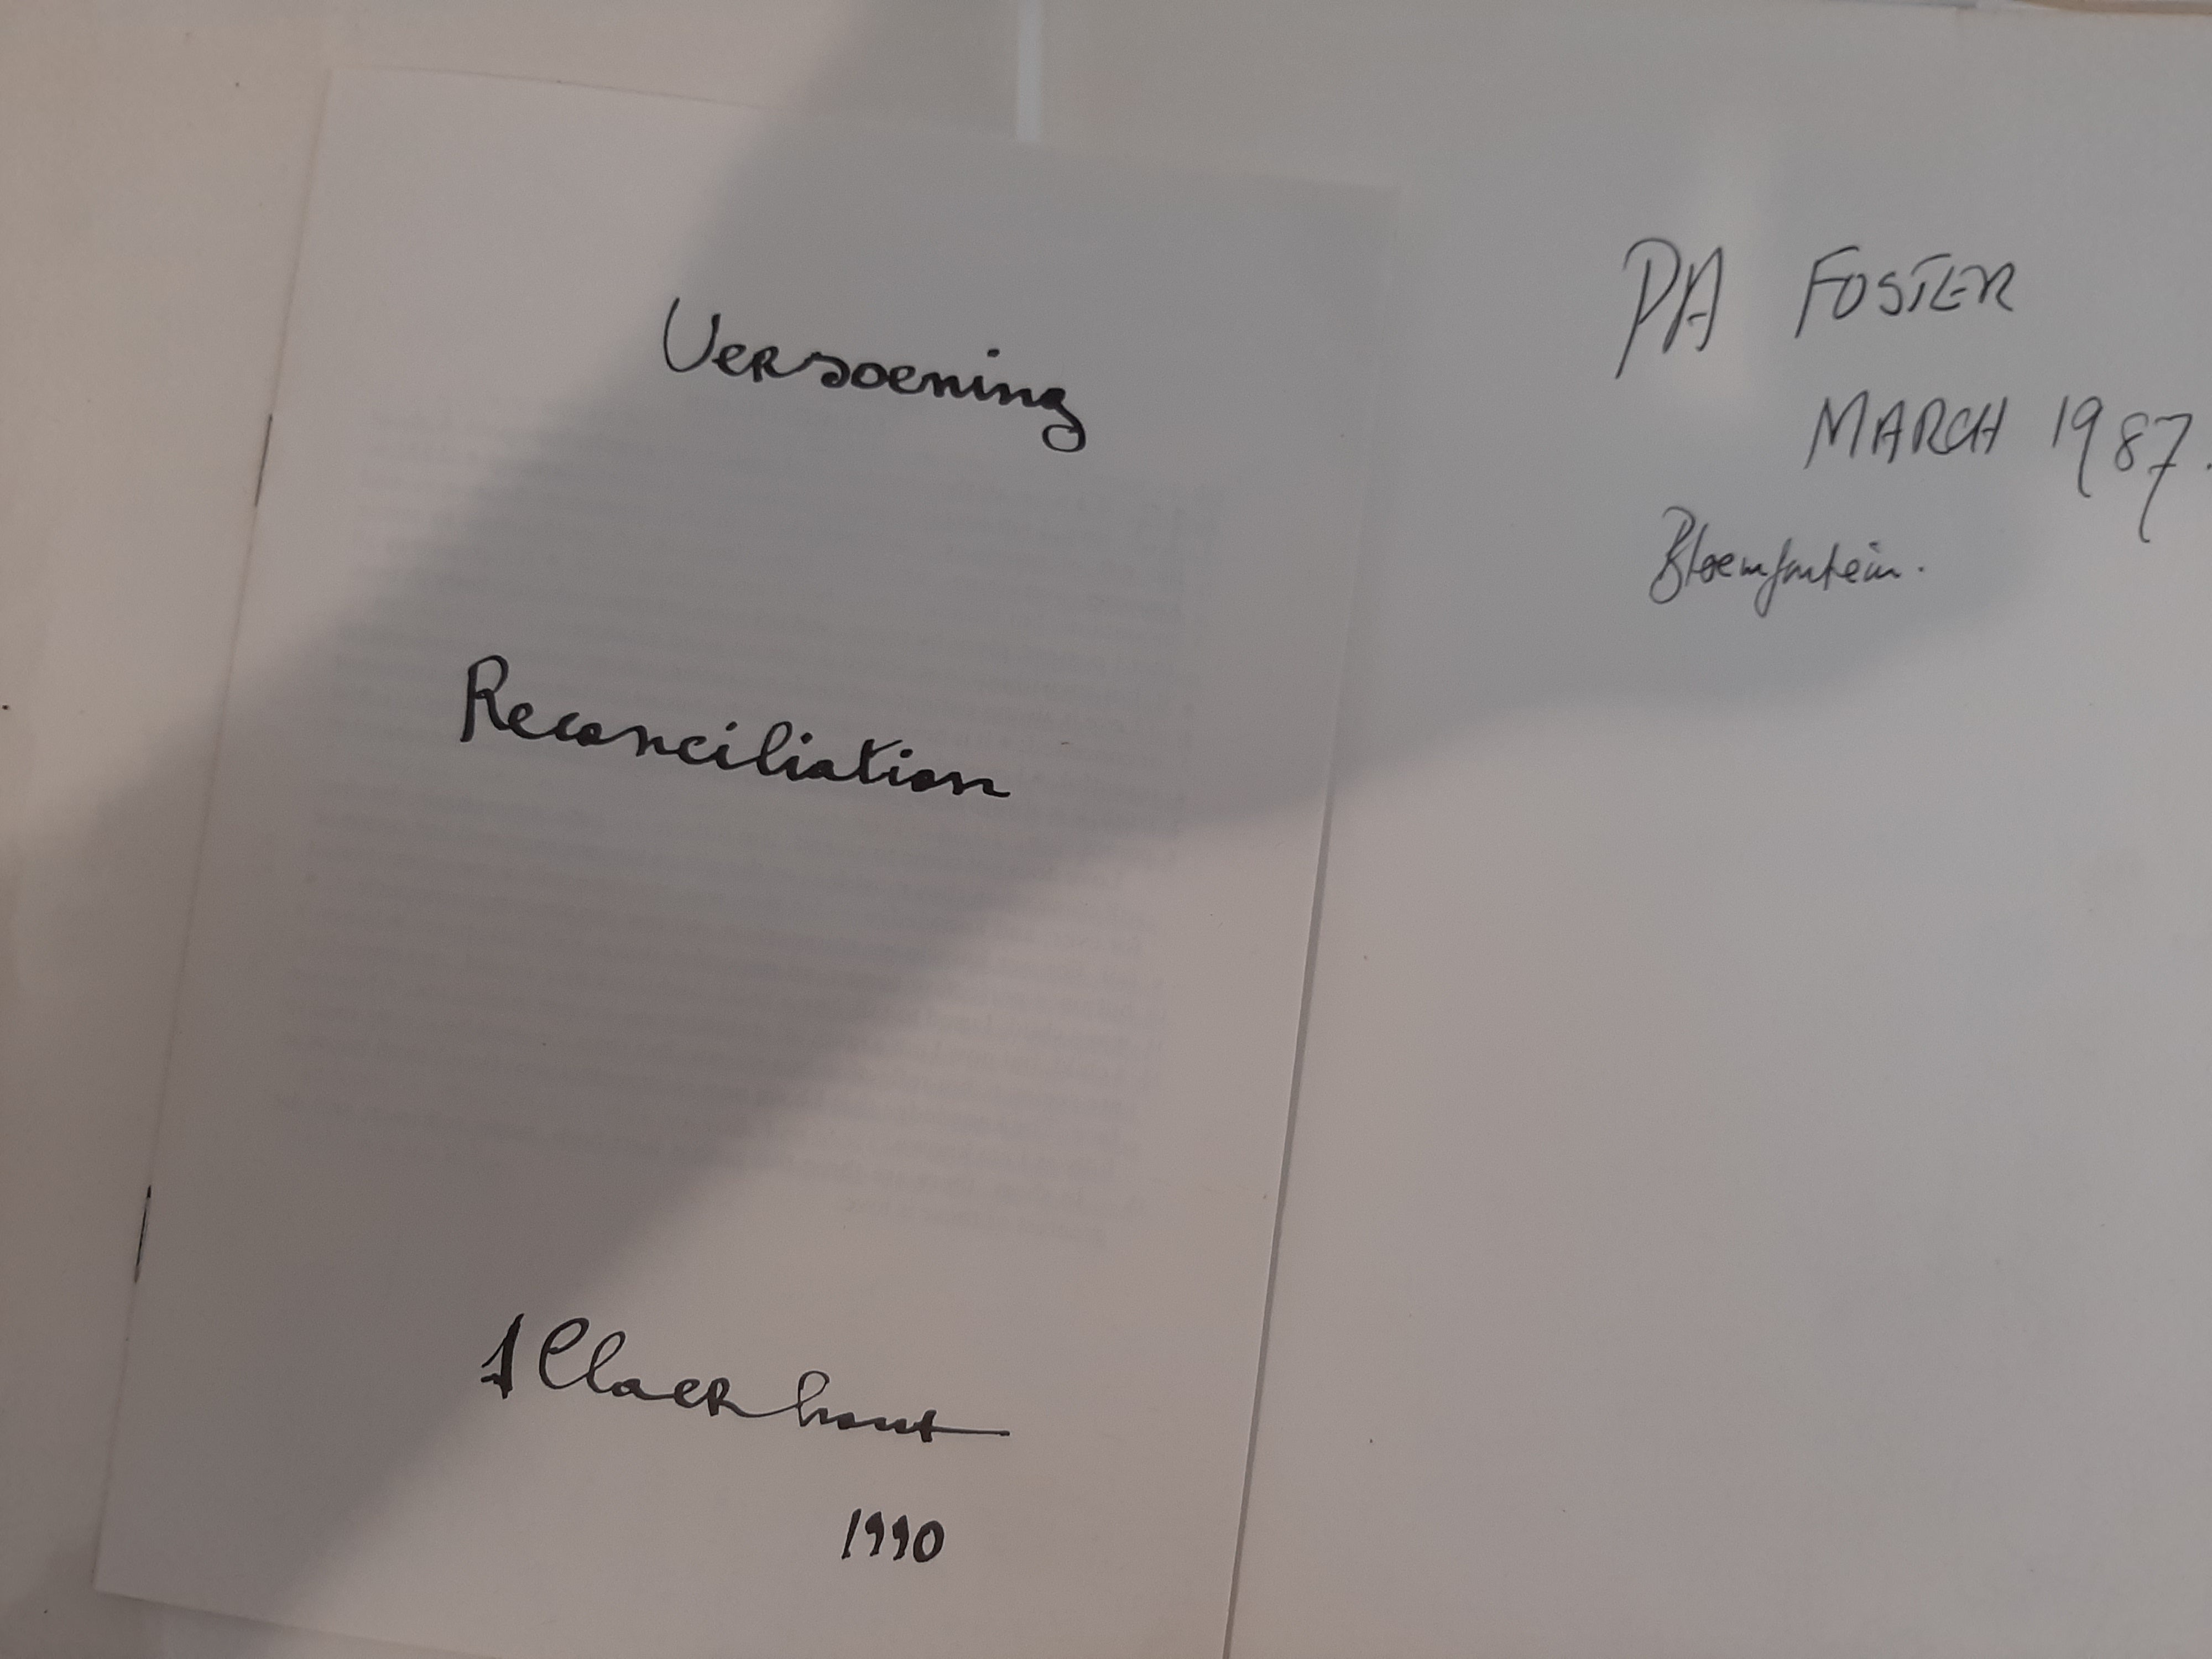 Versoening
Reconciliation
f Claerhout
1990
PA FOSTER
MARCH 1987.
Bloemfontein.